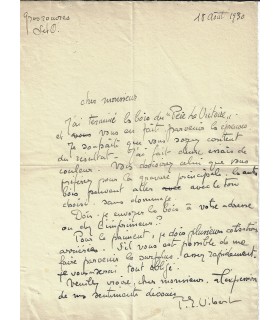 18 Août 1930
S et O.
cher monsieur
J'ai terminé les bois du "Père La
et vous en fait parvenir les épreuves
Je souhaite que vous soyez content
du résultat. J'ai fait deux essais de
couleur. Vous choisirez celui que vous
préférez pour la gravure principale, les autres
bois peuvent aller avec le ton
choisi sans dommage.
Dois-je envoyer les bois à votre adresse
ou chez l'imprimeur?
Pour le paiement, je dois plusieurs cotisations
arriérées. S'il vous est possible de me
faire parvenir le surplus assez rapidement
je vous serai tout obligé.
Veuillez croire cher monsieur, à l'expression
de mes sentiments dévoués
P. E. Vibert